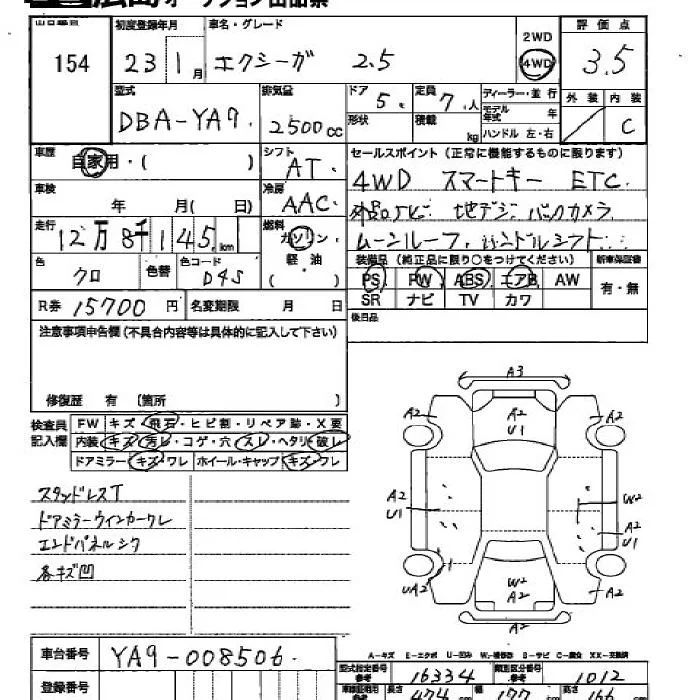 広島オークション出品票
出品番号 154
初度登録年月 23 1月
車名・グレード エクシーガ 2.5
2WD 4WD
評価点 3.5
外装 内装 C
型式 DBA-YA9
排気量 2500cc
ドア 5 定員 7人
形状 積載 kg
ディーラー・並行
モデル年式 年
ハンドル 左・右
車歴 自家用・( )
シフト AT
車検 年 月( 日)
冷房 AAC
走行 12万8千145km
燃料 ガソリン 軽油 ( )
色 クロ 色替 色コード D4S
R券 15700円 名変期限 月 日
セールスポイント(正常に機能するものに限ります)
4WD スマートキー ETC
地デジ バックカメラ
ムーンルーフ
装備品(純正品に限り○をつけてください) 新車保証書
PS PW ABS エアB AW 有・無
SR ナビ TV カワ
後日品
注意事項申告欄(不具合内容等は具体的に記入して下さい)
修復歴 有 (箇所 )
検査員記入欄
FW キズ・飛石・ヒビ割・リペア跡・X要
内装 キズ・汚レ・コゲ・穴・スレ・ヘタリ・破レ
ドアミラー キズ・ワレ ホイール・キャップ キズ・ワレ
スタッドレスT
ドアミラーウインカーワレ
エンドパネルシワ
各キズ凹
A3
A2 A2 U1 A2
A2 U1 W2
A2 U1
UA2 W2 A2 A2
A2
A-キズ E-エクボ U-凹み W-補修跡 S-サビ C-腐食 XX-交換済
車台番号 YA9-008506
登録番号
型式指定番号 参考 16334 類別区分番号 参考 1012
長さ 474cm 幅 177cm 高さ 166cm